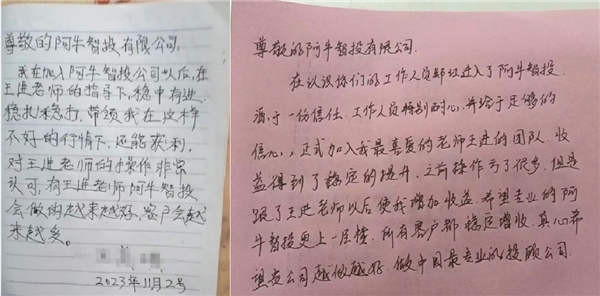 尊敬的阿牛智投有限公司:
我在加入阿牛智投公司以后,在
王进老师的指导下,稳中有进,
稳扎稳打,带领我在这样
不好的行情下,还能获利,
对王进老师的操作非常
认可,有王进老师阿牛智投
会做的越来越好,客户会越
来越多。
2023年11月2号
尊敬的阿牛智投有限公司.
在认识你们的工作人员 进入了阿牛智投
源于一份信任.工作人员特别耐心,并给于足够的
信心,正式加入我最喜爱的老师王进的团队.收
益得到了稳定的提升,之前操作亏了很多.但是
跟了王进老师以后使我增加收益.希望专业的阿
牛智投更上一层楼.所有客户都稳定增收.真心希
望贵公司越做越好.做中国最专业的投顾公司.